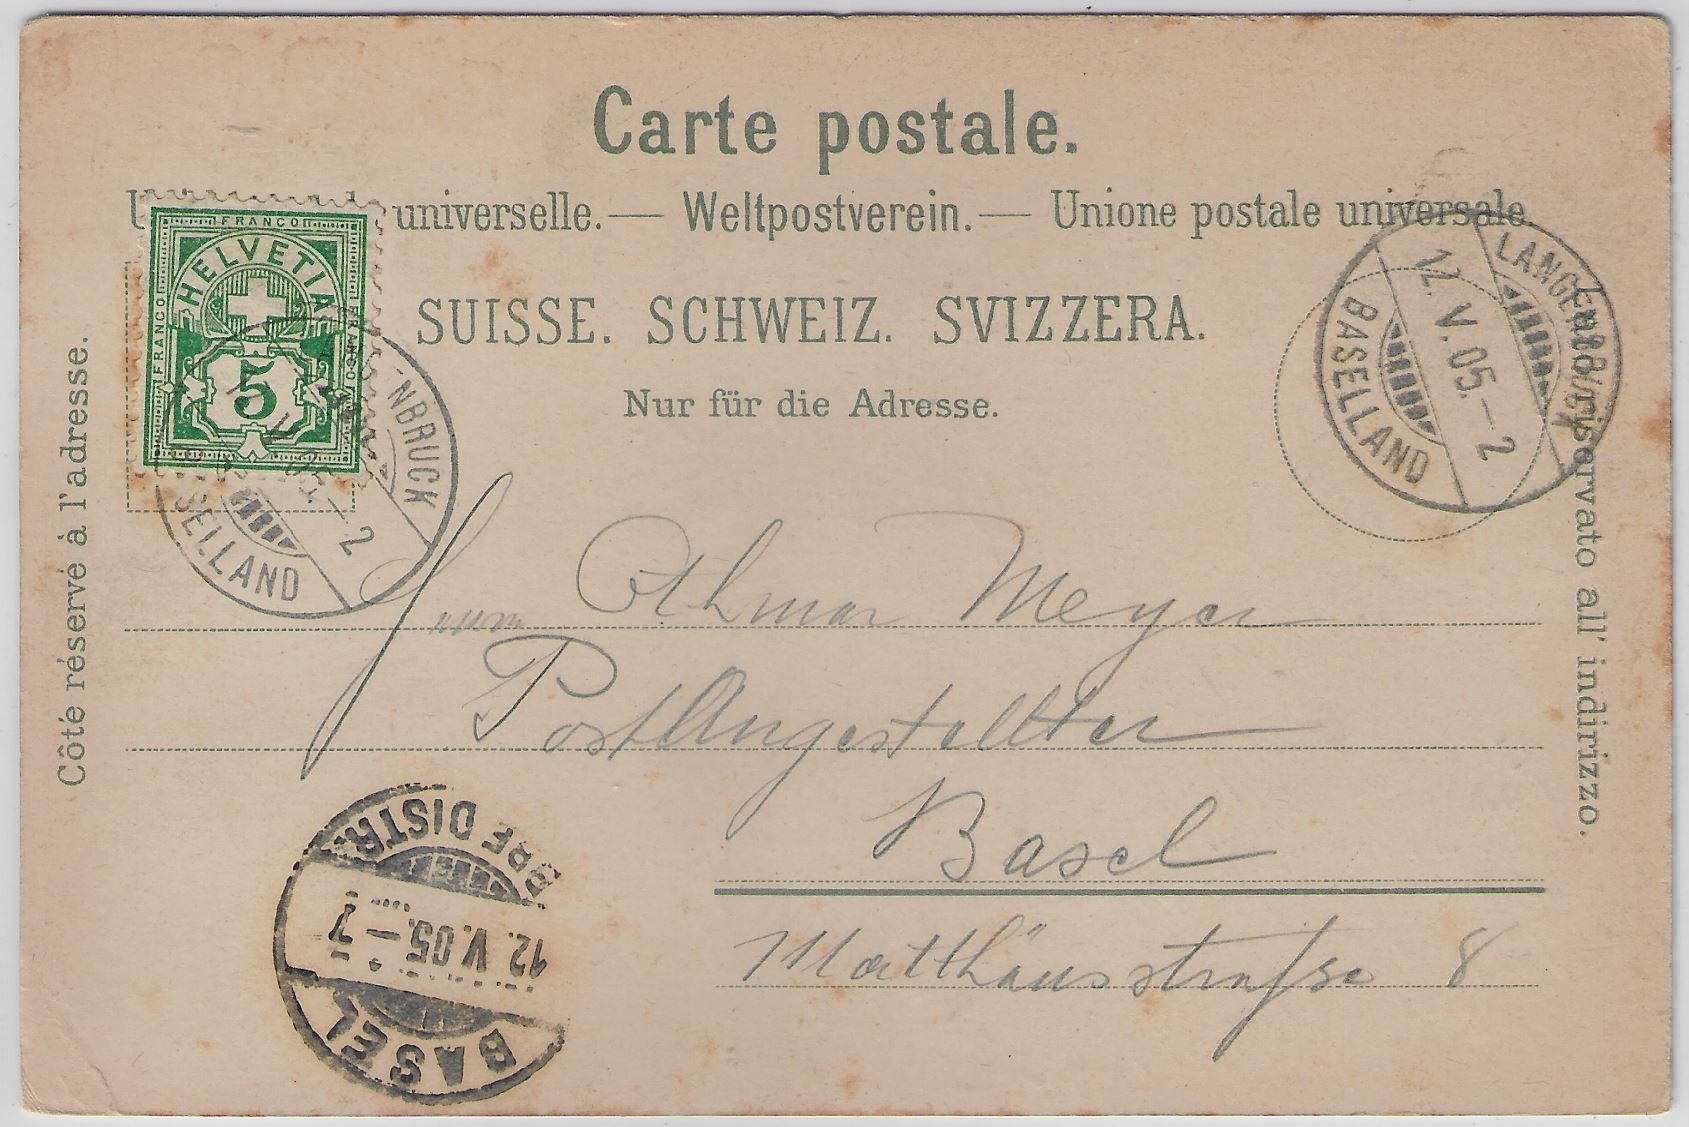 Carte postale.
universelle. — Weltpostverein. — Unione postale universale.
SUISSE. SCHWEIZ. SVIZZERA.
Nur für die Adresse.
Côté réservé à l'adresse.
riservato all' indirizzo.
FRANCO
FRANCO
FRANCO
HELVETIA
5
ENBRUCK
V. 05. – 2
SELLAND
LANGENBRUCK
12. V. 05. – 2
BASELLAND
Herrn Othmar Meyer
Post Angestellter
Basel
Matthäusstrasse 8
BRF DISTR.
12. V. 05. – 7
BASEL